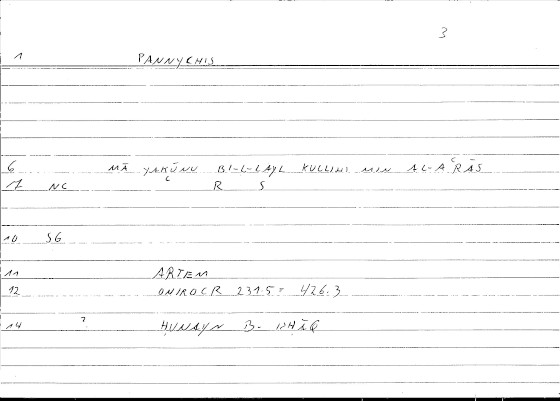 3
1 PANNYCHIS
6 MĀ YAKŪNU BI-L-LAYL KULLIHI MIN AL-AʿRĀS
7 NC C R S
10 SG
11 ARTEM
12 ONIROCR 231.5 = 426.3
14 ? ḤUNAYN B. ISḤĀQ